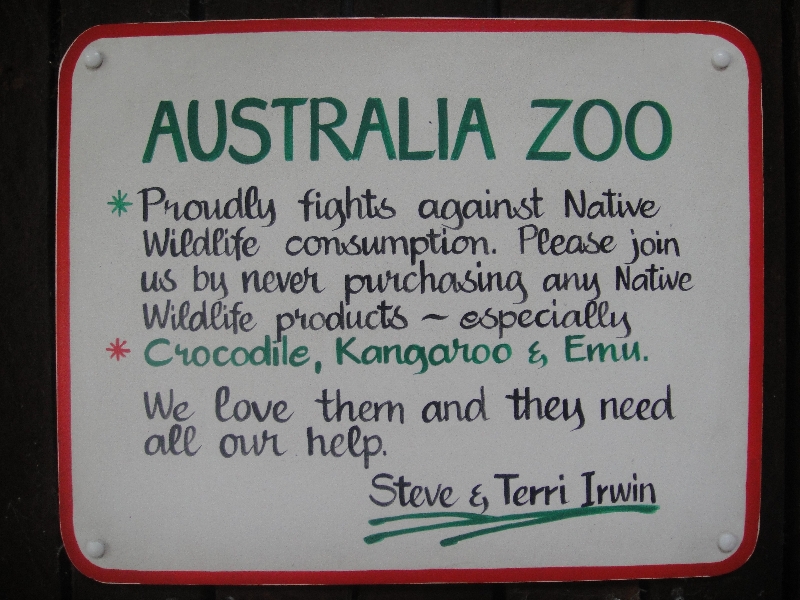 AUSTRALIA ZOO
* Proudly fights against Native
Wildlife consumption. Please join
us by never purchasing any Native
Wildlife products ~ especially
* Crocodile, Kangaroo & Emu.
We love them and they need
all our help.
Steve & Terri Irwin